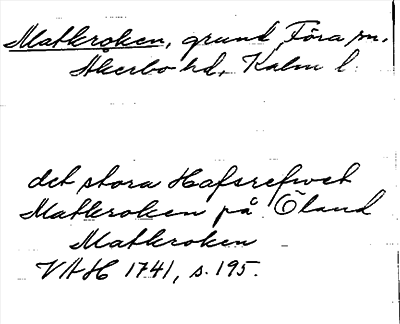 Matkroken, grund Föra sn.
Åkerbo hd, Kalm l.
det stora Hafsrefwet
Matkroken på Öland
Matkroken
VAH 1741, s. 195.